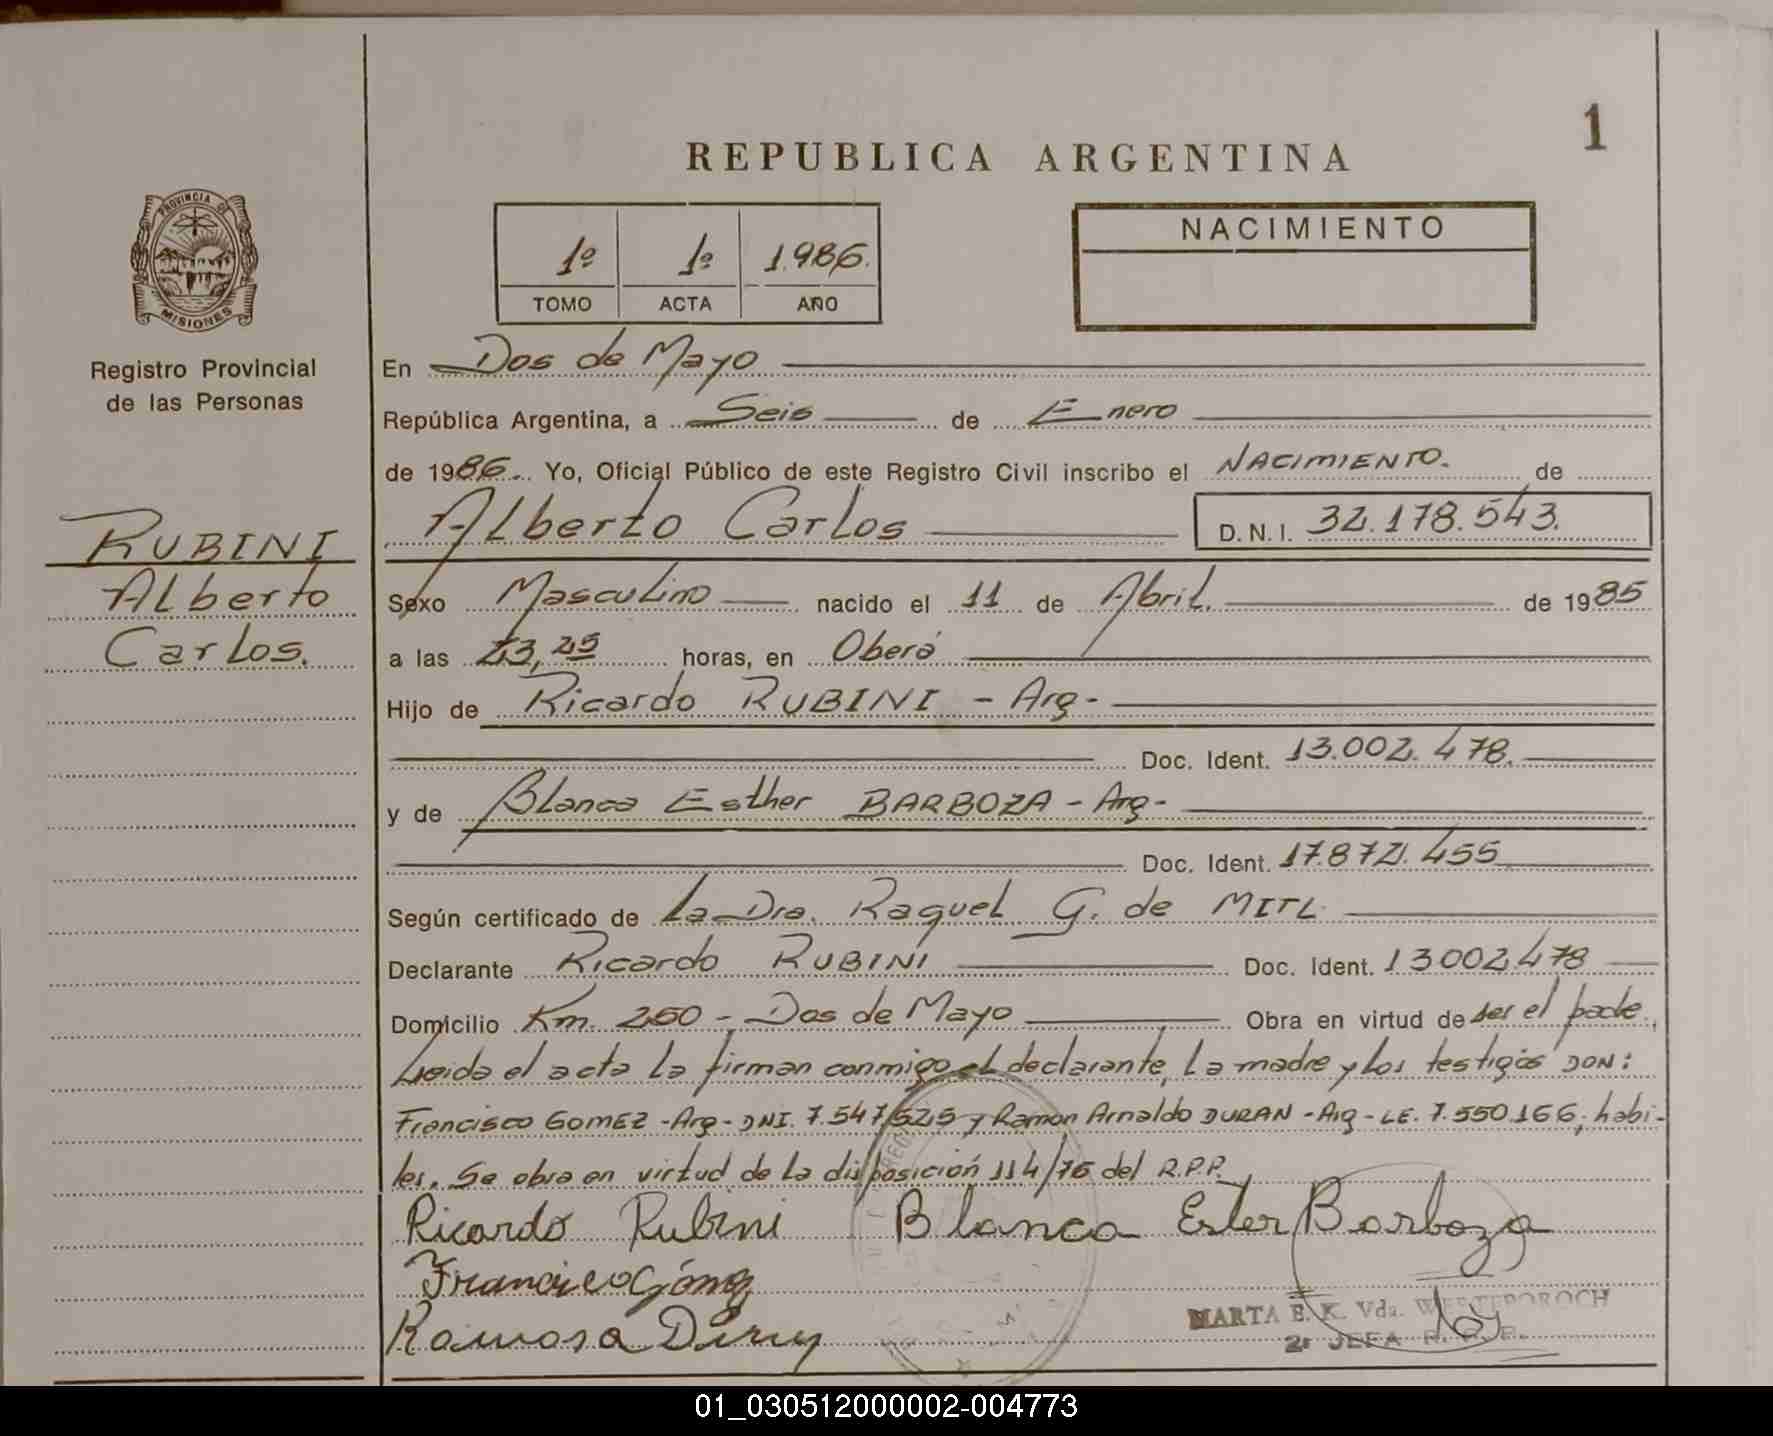 1
REPUBLICA ARGENTINA
PROVINCIA DE
MISIONES
Registro Provincial
de las Personas
RUBINI
Alberto
Carlos.
1º 1º 1.986.
TOMO ACTA AÑO
NACIMIENTO
En Dos de Mayo
República Argentina, a Seis de Enero
de 1986. Yo, Oficial Público de este Registro Civil inscribo el NACIMIENTO. de
Alberto Carlos D.N.I. 32.178.543.
Sexo Masculino nacido el 11 de Abril. de 1985
a las 23,25 horas, en Oberá
Hijo de Ricardo RUBINI - Arg-
Doc. Ident. 13.002.478.
y de Blanca Esther BARBOZA - Arg-
Doc. Ident. 17.872.455
Según certificado de La Dra. Raquel G. de MITL
Declarante Ricardo RUBINI Doc. Ident. 13002.478
Domicilio Km. 260 - Dos de Mayo Obra en virtud de ser el padre.
Leida el acta la firman conmigo el declarante, la madre y los testigos DON:
Francisco GOMEZ - Arg - DNI. 7.547.525 y Ramon Arnaldo DURAN - Arg - LE. 7.550.166, habi-
les. Se obra en virtud de la disposición 114/76 del R.P.P.
Ricardo Rubini Blanca Ester Barboza
Francisco Gómez
MARTA E. K. Vda. WESTEPOROCH
JEFA R. P. P.
01_030512000002-004773